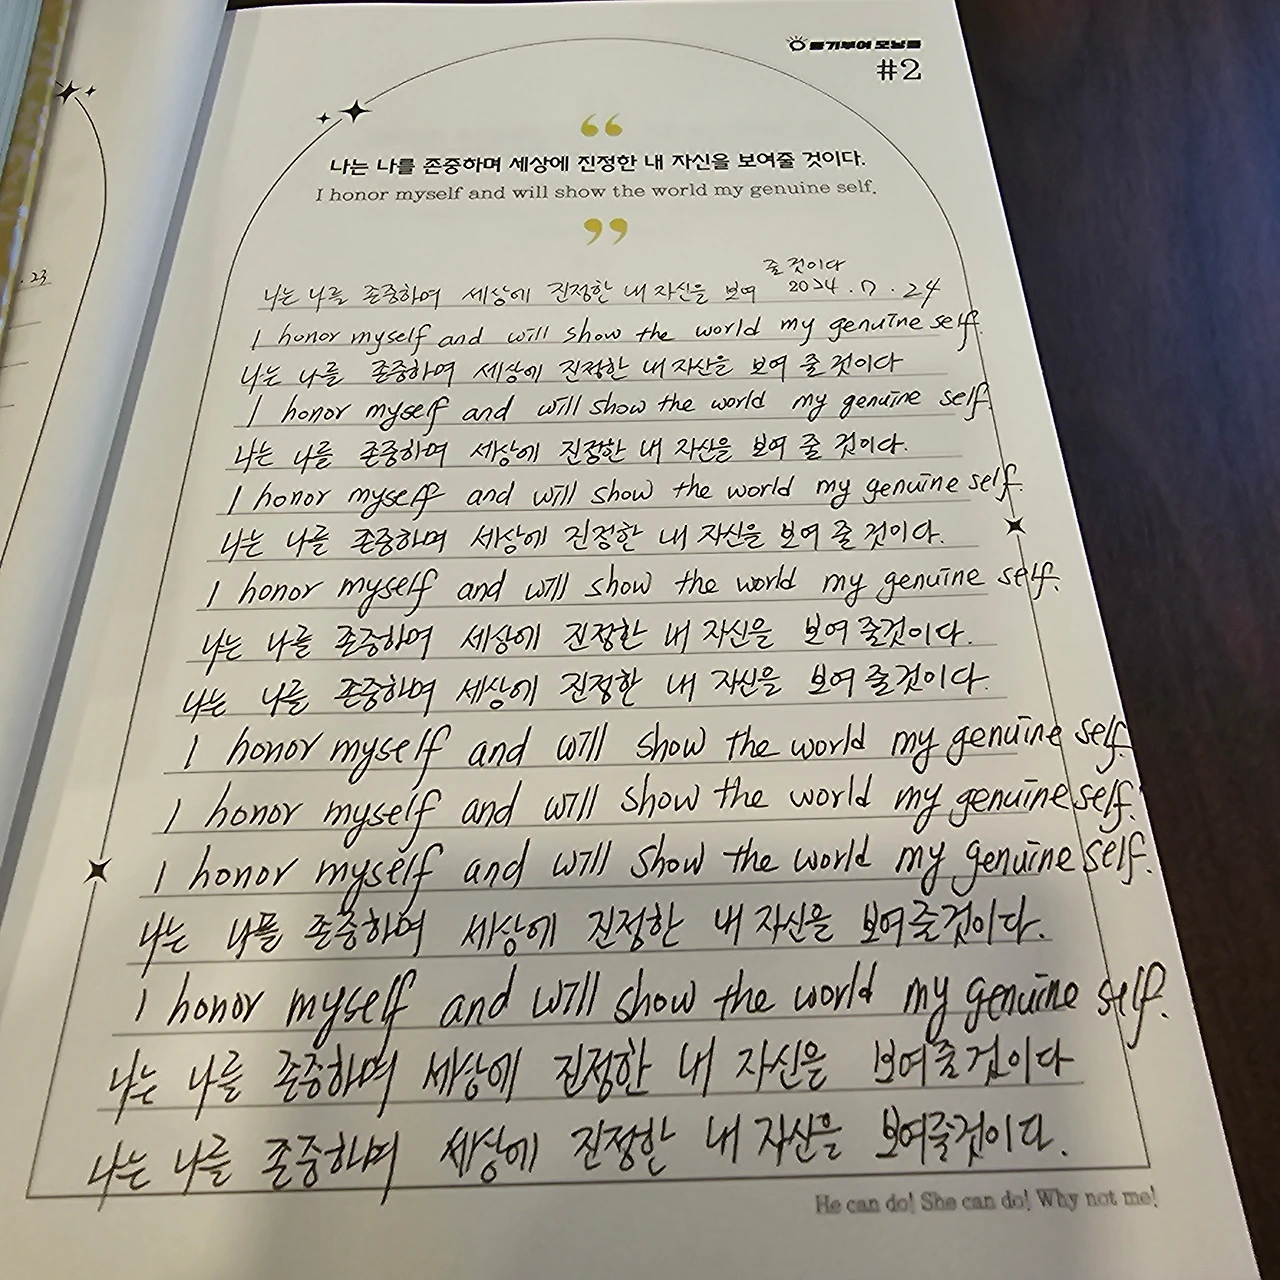 동기부여 모닝콜
#2
“
나는 나를 존중하며 세상에 진정한 내 자신을 보여줄 것이다.
I honor myself and will show the world my genuine self.
”
. 23
줄 것이다
나는 나를 존중하며 세상에 진정한 내 자신을 보여 2024. 7. 24
I honor myself and will show the world my genuine self.
나는 나를 존중하며 세상에 진정한 내 자신을 보여 줄 것이다
I honor myself and will show the world my genuine self.
나는 나를 존중하며 세상에 진정한 내 자신을 보여 줄 것이다.
I honor myself and will show the world my genuine self.
나는 나를 존중하며 세상에 진정한 내 자신을 보여 줄 것이다.
I honor myself and will show the world my genuine self.
나는 나를 존중하며 세상에 진정한 내 자신을 보여 줄것이다.
나는 나를 존중하며 세상에 진정한 내 자신을 보여 줄것이다.
I honor myself and will show the world my genuine self.
I honor myself and will show the world my genuine self.
I honor myself and will show the world my genuine self.
나는 나를 존중하며 세상에 진정한 내 자신을 보여줄것이다.
I honor myself and will show the world my genuine self.
나는 나를 존중하며 세상에 진정한 내 자신을 보여줄 것이다
나는 나를 존중하며 세상에 진정한 내 자신을 보여줄것이다.
He can do! She can do! Why not me!